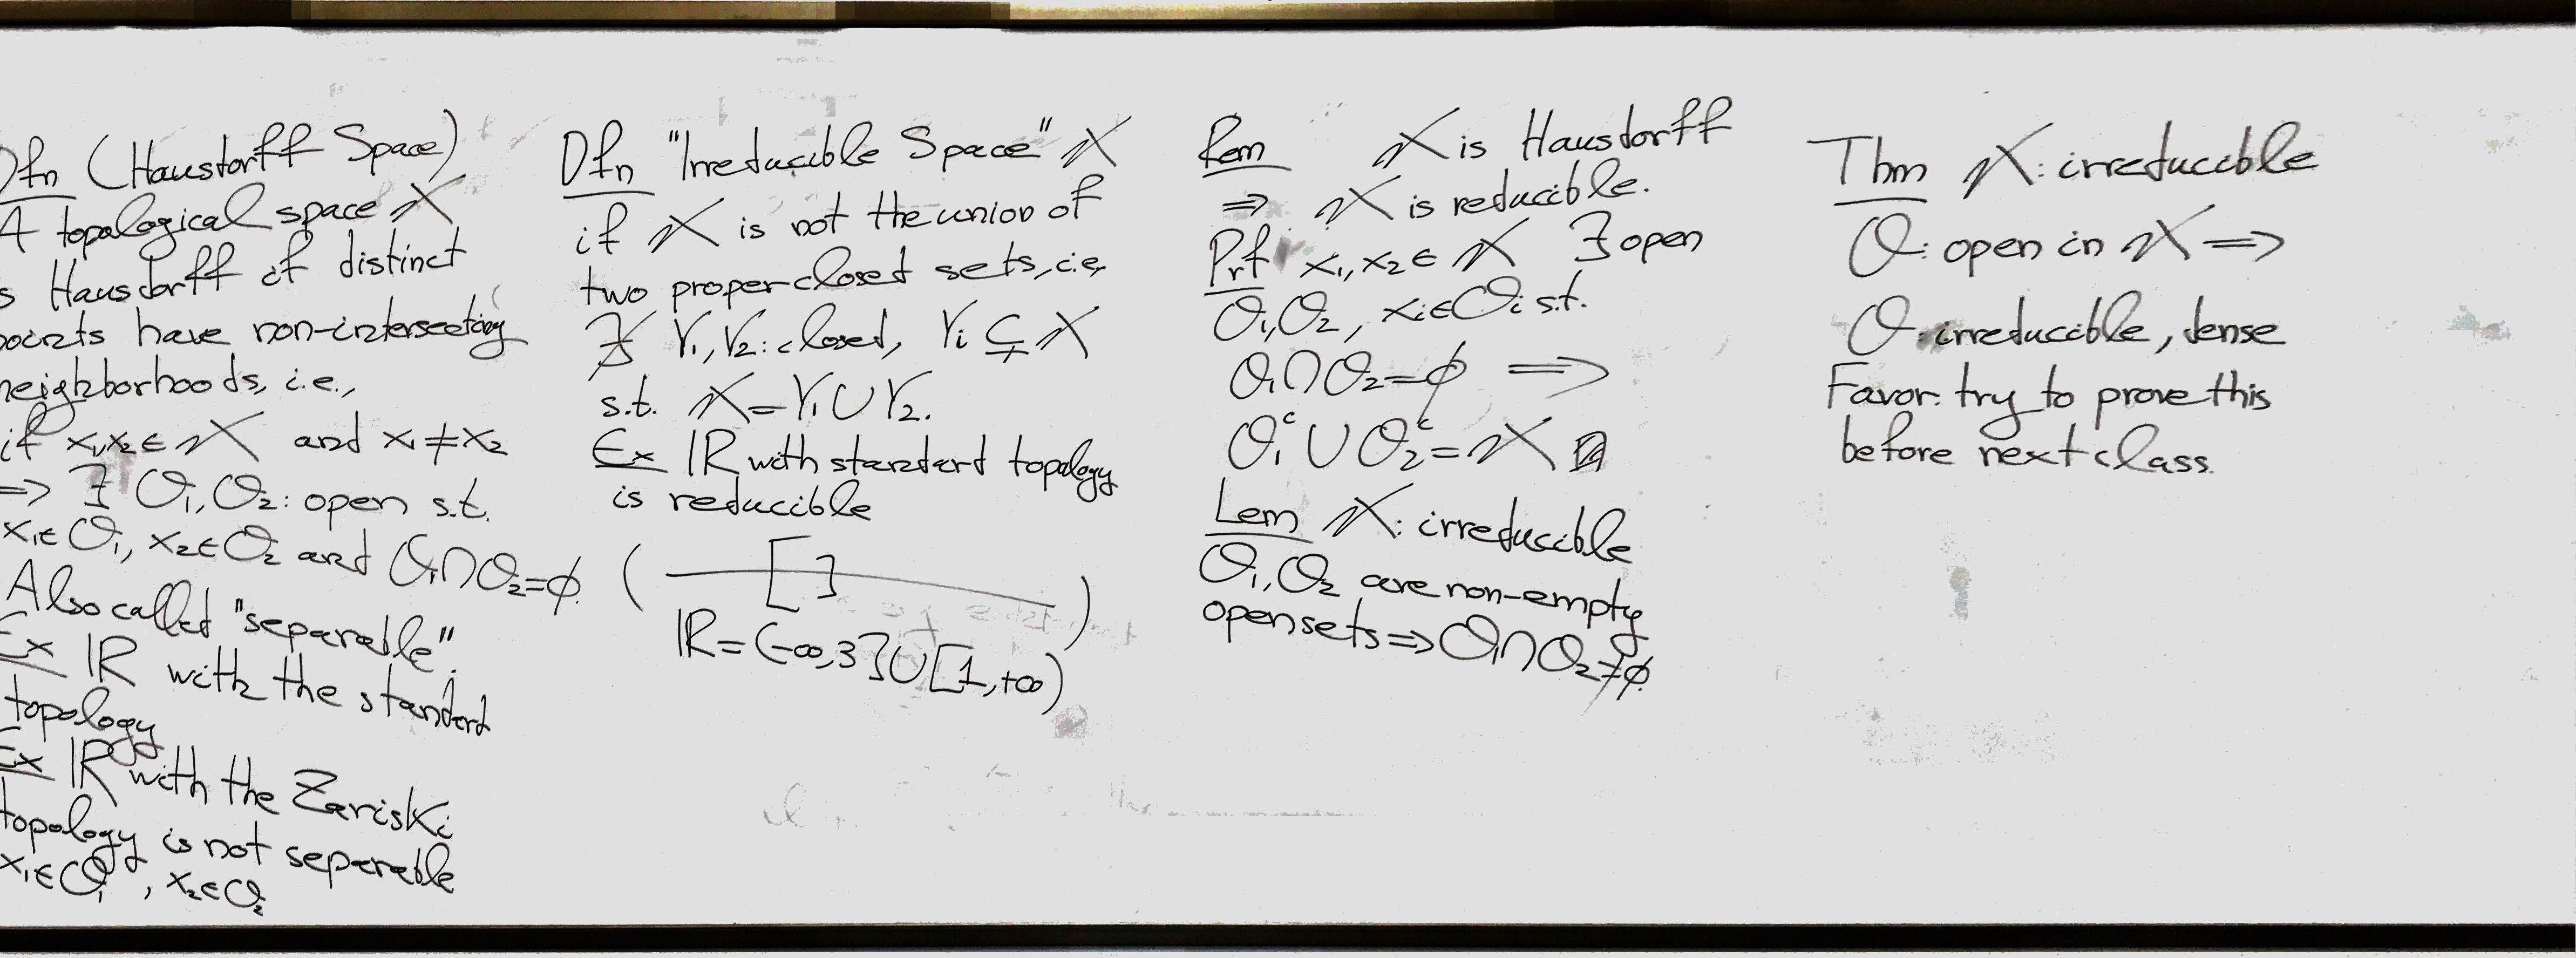 Dfn (Hausdorff Space)
A topological space X
s Hausdorff if distinct
points have non-intersecting
neighborhoods, i.e.,
if x₁,x₂ ∈ X and x₁ ≠ x₂
=> ∃ O₁, O₂: open s.t.
x₁∈O₁, x₂∈O₂ and O₁∩O₂=∅.
Also called "separable".
Ex ℝ with the standard
topology
Ex ℝ with the Zariski
topology is not separable
x₁∈O₁, x₂∈O₂
Dfn "Irreducible Space" X
if X is not the union of
two proper closed sets, i.e,
∄ Y₁,Y₂: closed, Yᵢ ⊊ X
s.t. X = Y₁ ∪ Y₂.
Ex ℝ with standard topology
is reducible
( [ ] )
ℝ = (-∞,3] ∪ [1,+∞)
Rem X is Hausdorff
=> X is reducible.
Prf x₁,x₂ ∈ X ∃ open
O₁,O₂, xᵢ∈Oᵢ s.t.
O₁∩O₂=∅ =>
O₁ᶜ ∪ O₂ᶜ = X
Lem X: irreducible
O₁, O₂ are non-empty
open sets => O₁∩O₂≠∅.
Thm X: irreducible
O: open in X =>
O: irreducible, dense
Favor: try to prove this
before next class.